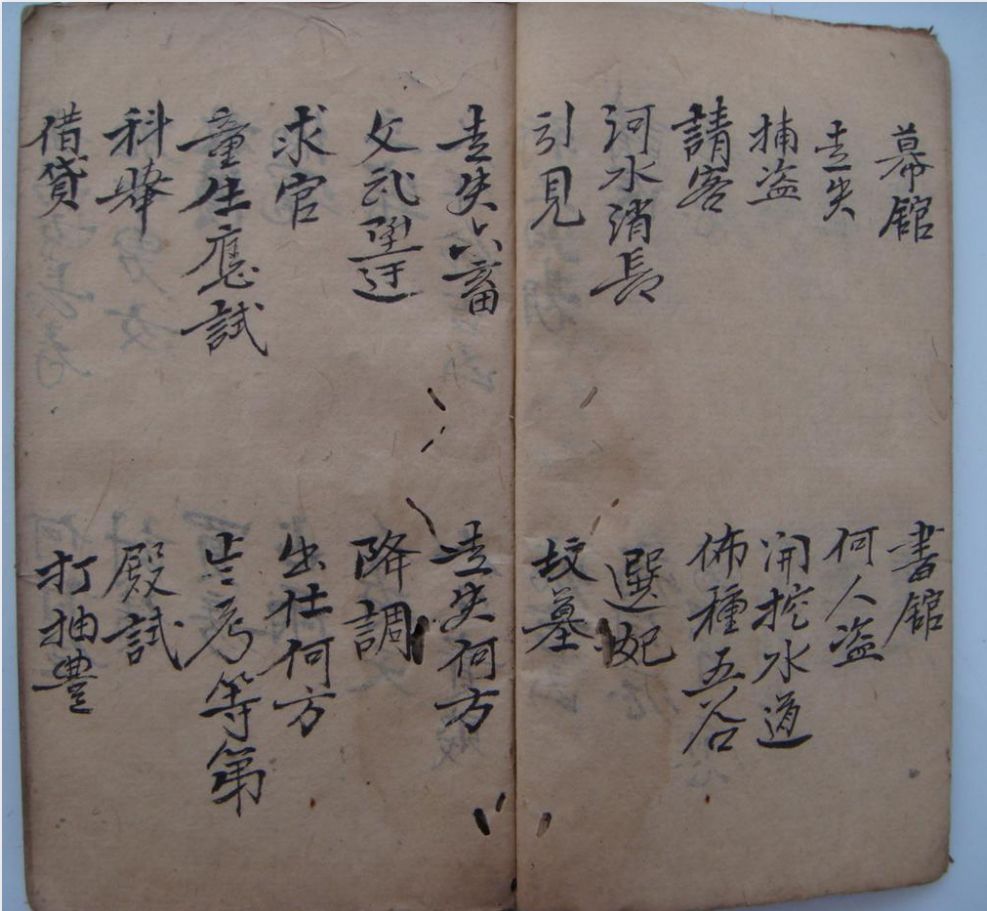 幕舘 書舘
走失 何人盜
捕盜 開挖水道
請客 佈種五谷
河水消長 選妃
引見 坟墓
走失六畜 走失何方
文武陞迁 降調
求官 出仕何方
童生應試 考等第
科舉 殿試
借貸 打抽豐